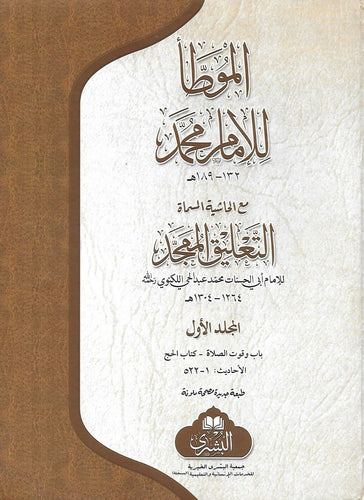 الموطأ
للإمام محمد
١٣٢ - ١٨٩ هـ
مع الحاشية المسماة
التعليق الممجد
للإمام أبي الحسنات محمد عبد الحي اللكنوي رحمه الله
١٢٦٤ - ١٣٠٤ هـ
المجلد الأول
باب وقوت الصلاة - كتاب الحج
الأحاديث: ١ - ٥٢٢
طبعة جديدة مصححة ملونة
البشرى
جمعية البشرى الخيرية
للخدمات الإنسانية والتعليمية (المسجلة)